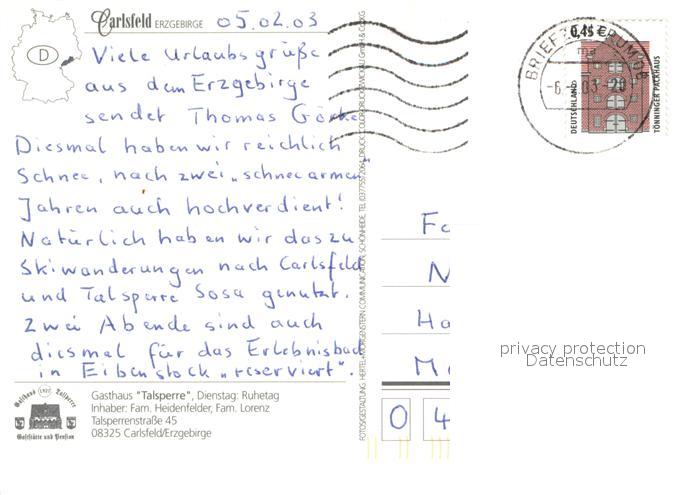 Carlsfeld ERZGEBIRGE 05.02.03
D
Viele Urlaubsgrüße
aus dem Erzgebirge
sendet Thomas
Diesmal haben wir reichlich
Schnee, nach zwei „schneearmen"
Jahren auch hochverdient!
Natürlich haben wir das zu
Skiwanderungen nach Carlsfeld
und Talsperre Sosa genutzt.
Zwei Abende sind auch
diesmal für das Erlebnisbad
in Eibenstock „reserviert".
Gasthaus "Talsperre", Dienstag: Ruhetag
Inhaber: Fam. Heidenfelder, Fam. Lorenz
Talsperrenstraße 45
08325 Carlsfeld/Erzgebirge
Gasthaus Talsperre
Gaststätte und Pension
BRIEFZENTRUM 08
-6.-2.03-20
0,45 €
DEUTSCHLAND
TÖNNINGER PACKHAUS
N
Ha
0 4
privacy protection
Datenschutz